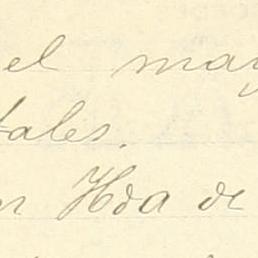 el may
tales.
Hda de